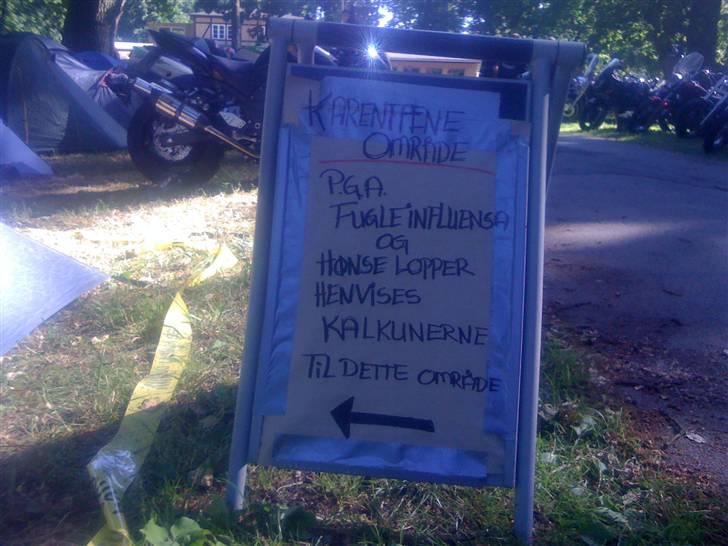 KARENTENE
OMRÅDE
P.G.A.
FUGLEINFLUENSA
OG
HØNSE LOPPER
HENVISES
KALKUNERNE
TIL DETTE OMRÅDE